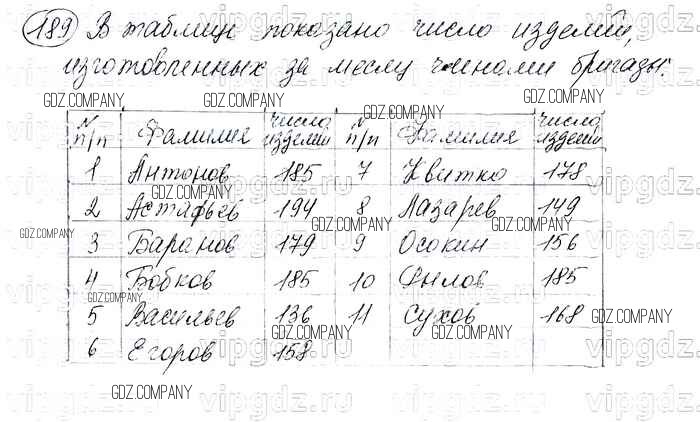 189 В таблице показано число изделий,
изготовленных за месяц членами бригады:
N п/п Фамилия число изделий N п/п Фамилия число изделий
1 Антонов 185 7 Квитко 178
2 Астафьев 194 8 Лазарев 149
3 Баранов 179 9 Осокин 156
4 Бобков 185 10 Фылов 185
5 Васильев 136 11 Сухов 168
6 Егоров 158
GDZ.COMPANY
vipgdz.ru